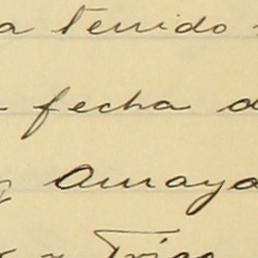 a tenido
fecha d
y Amaya
y Trigo